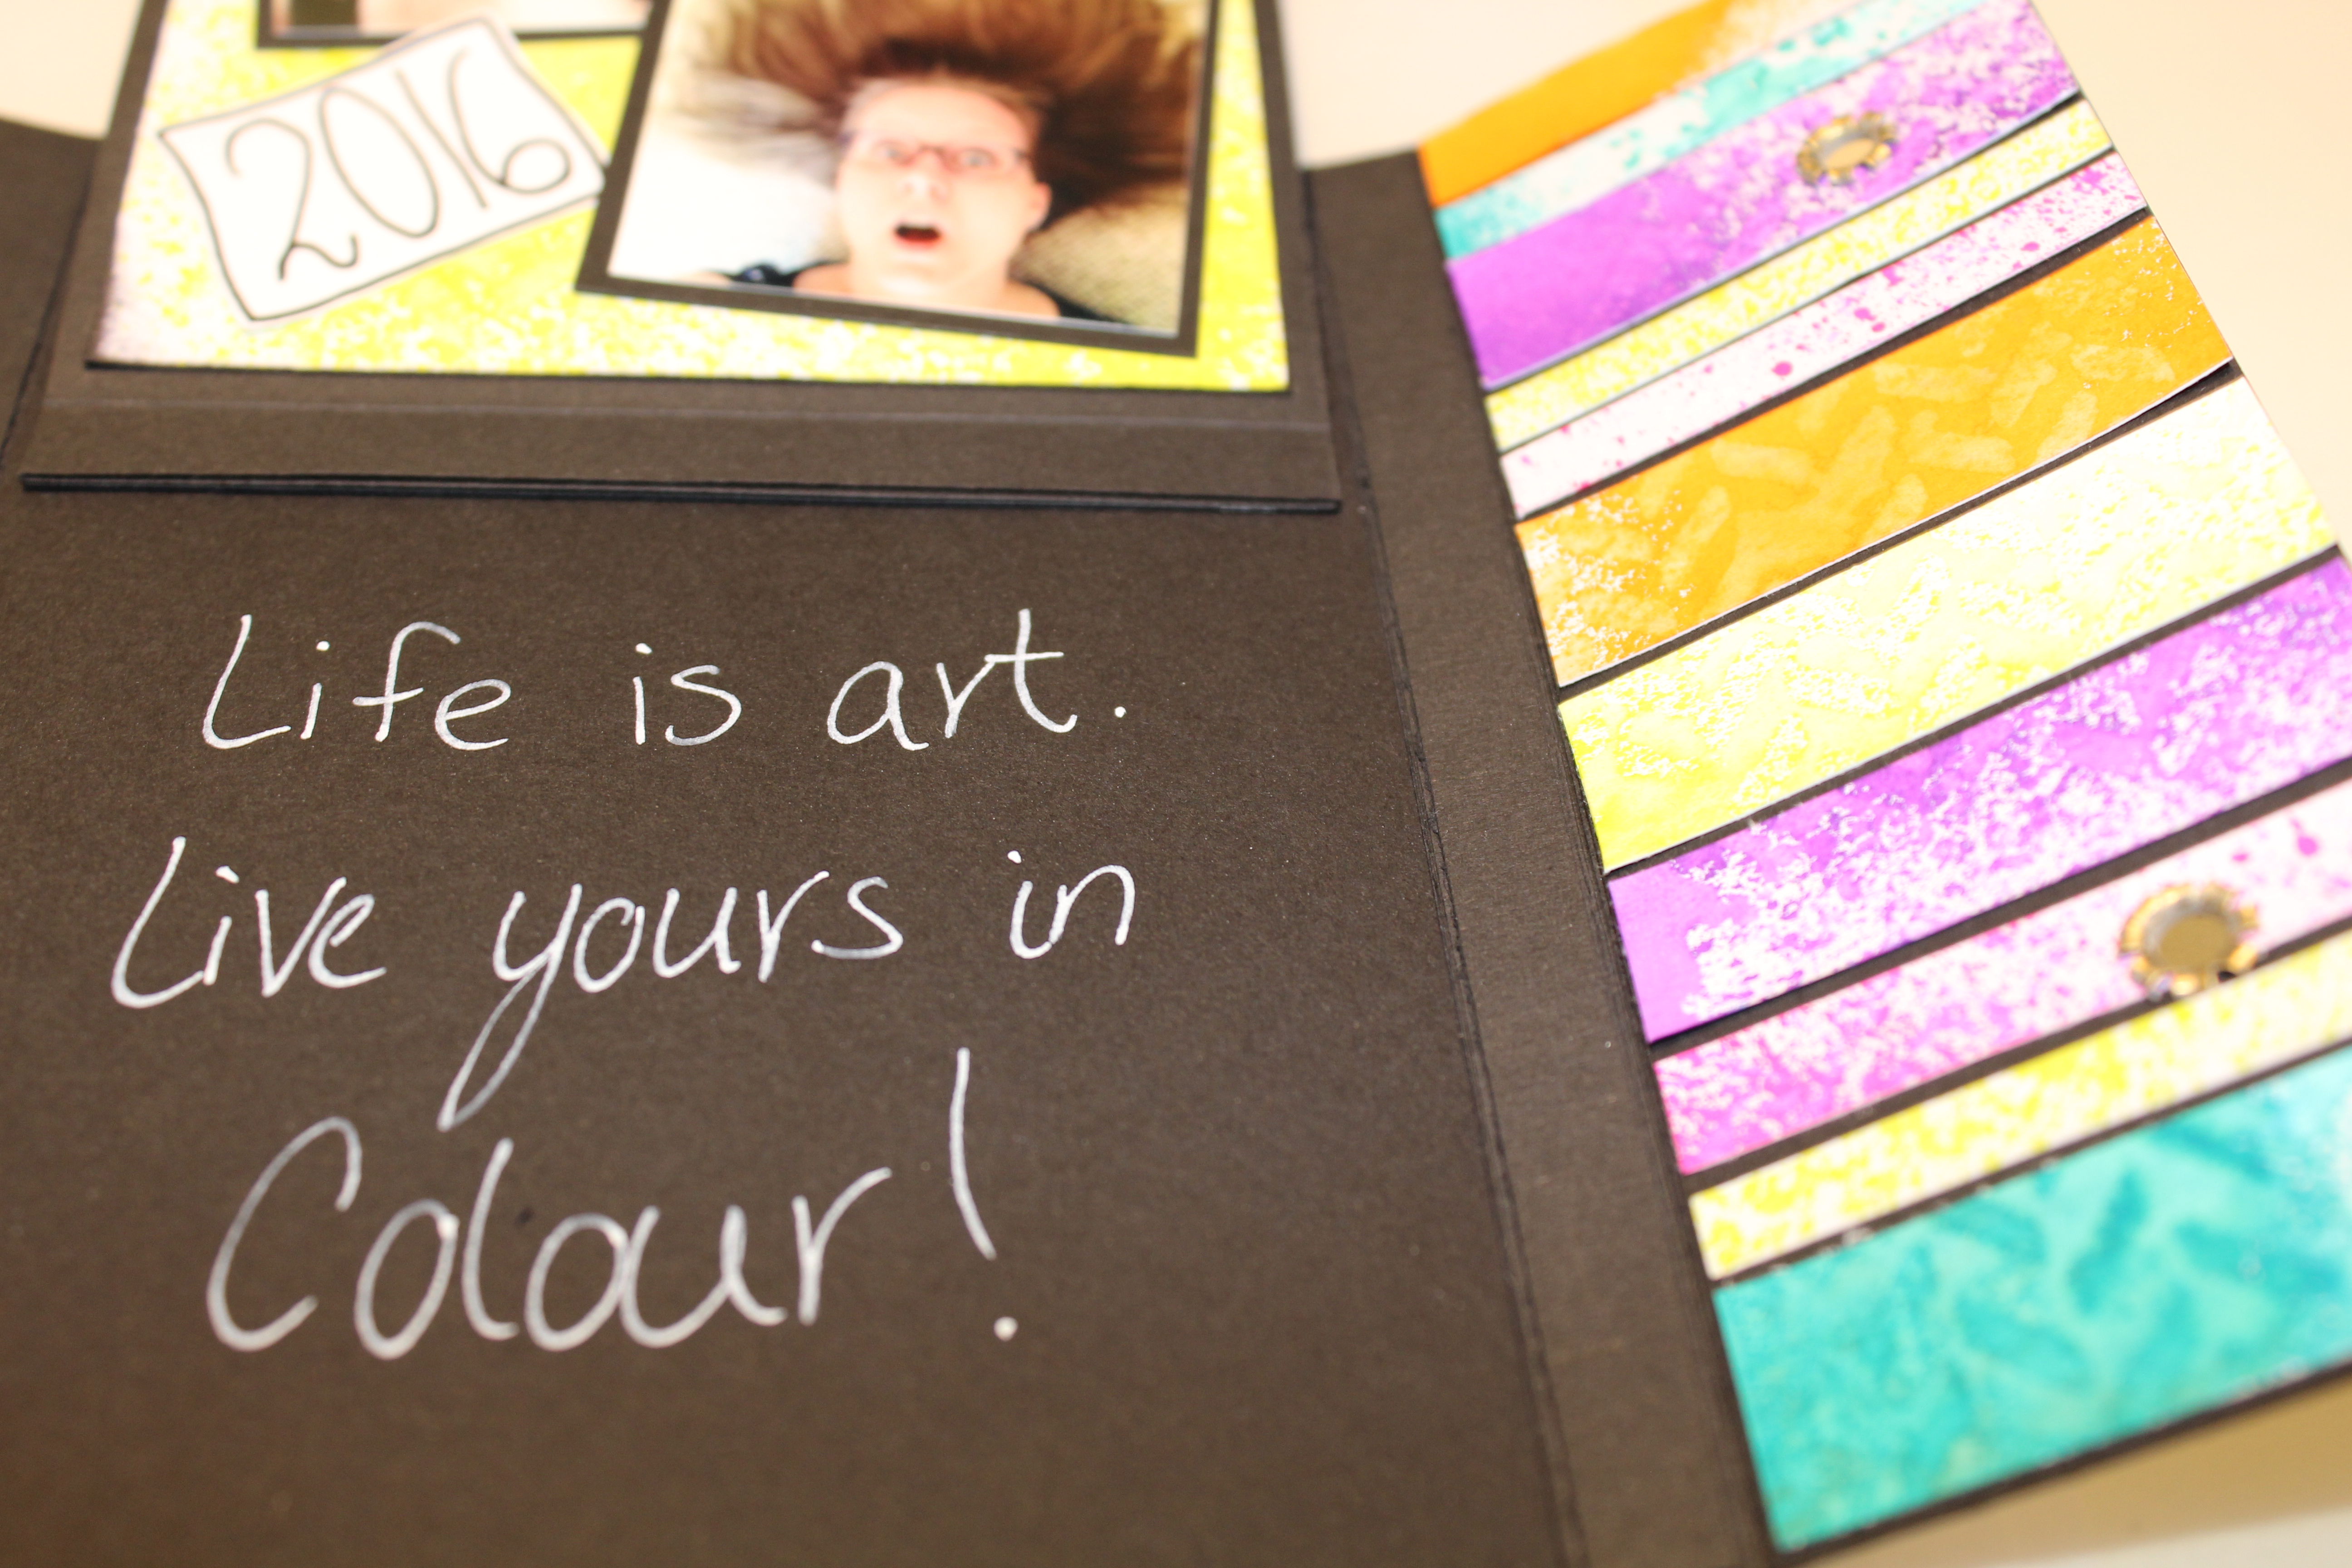 2016
Life is art.
Live yours in
Colour!